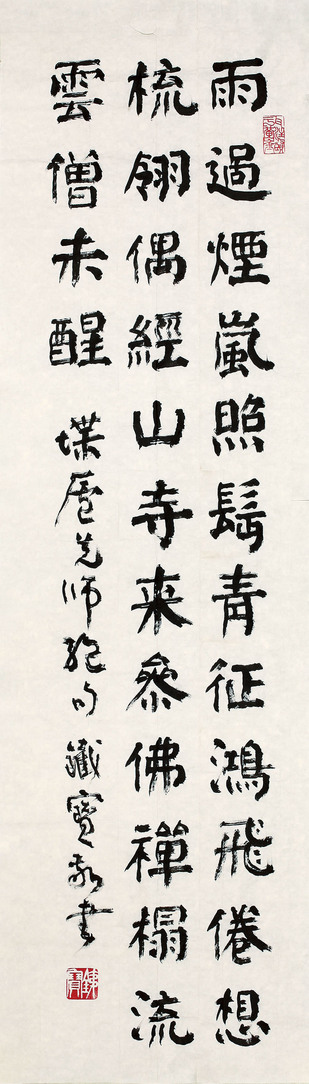 雨過煙嵐照髩青征鴻飛倦想
梳翎偶經山寺来參佛禪榻流
雲僧未醒
廬先师絶句 鐵寶敬書